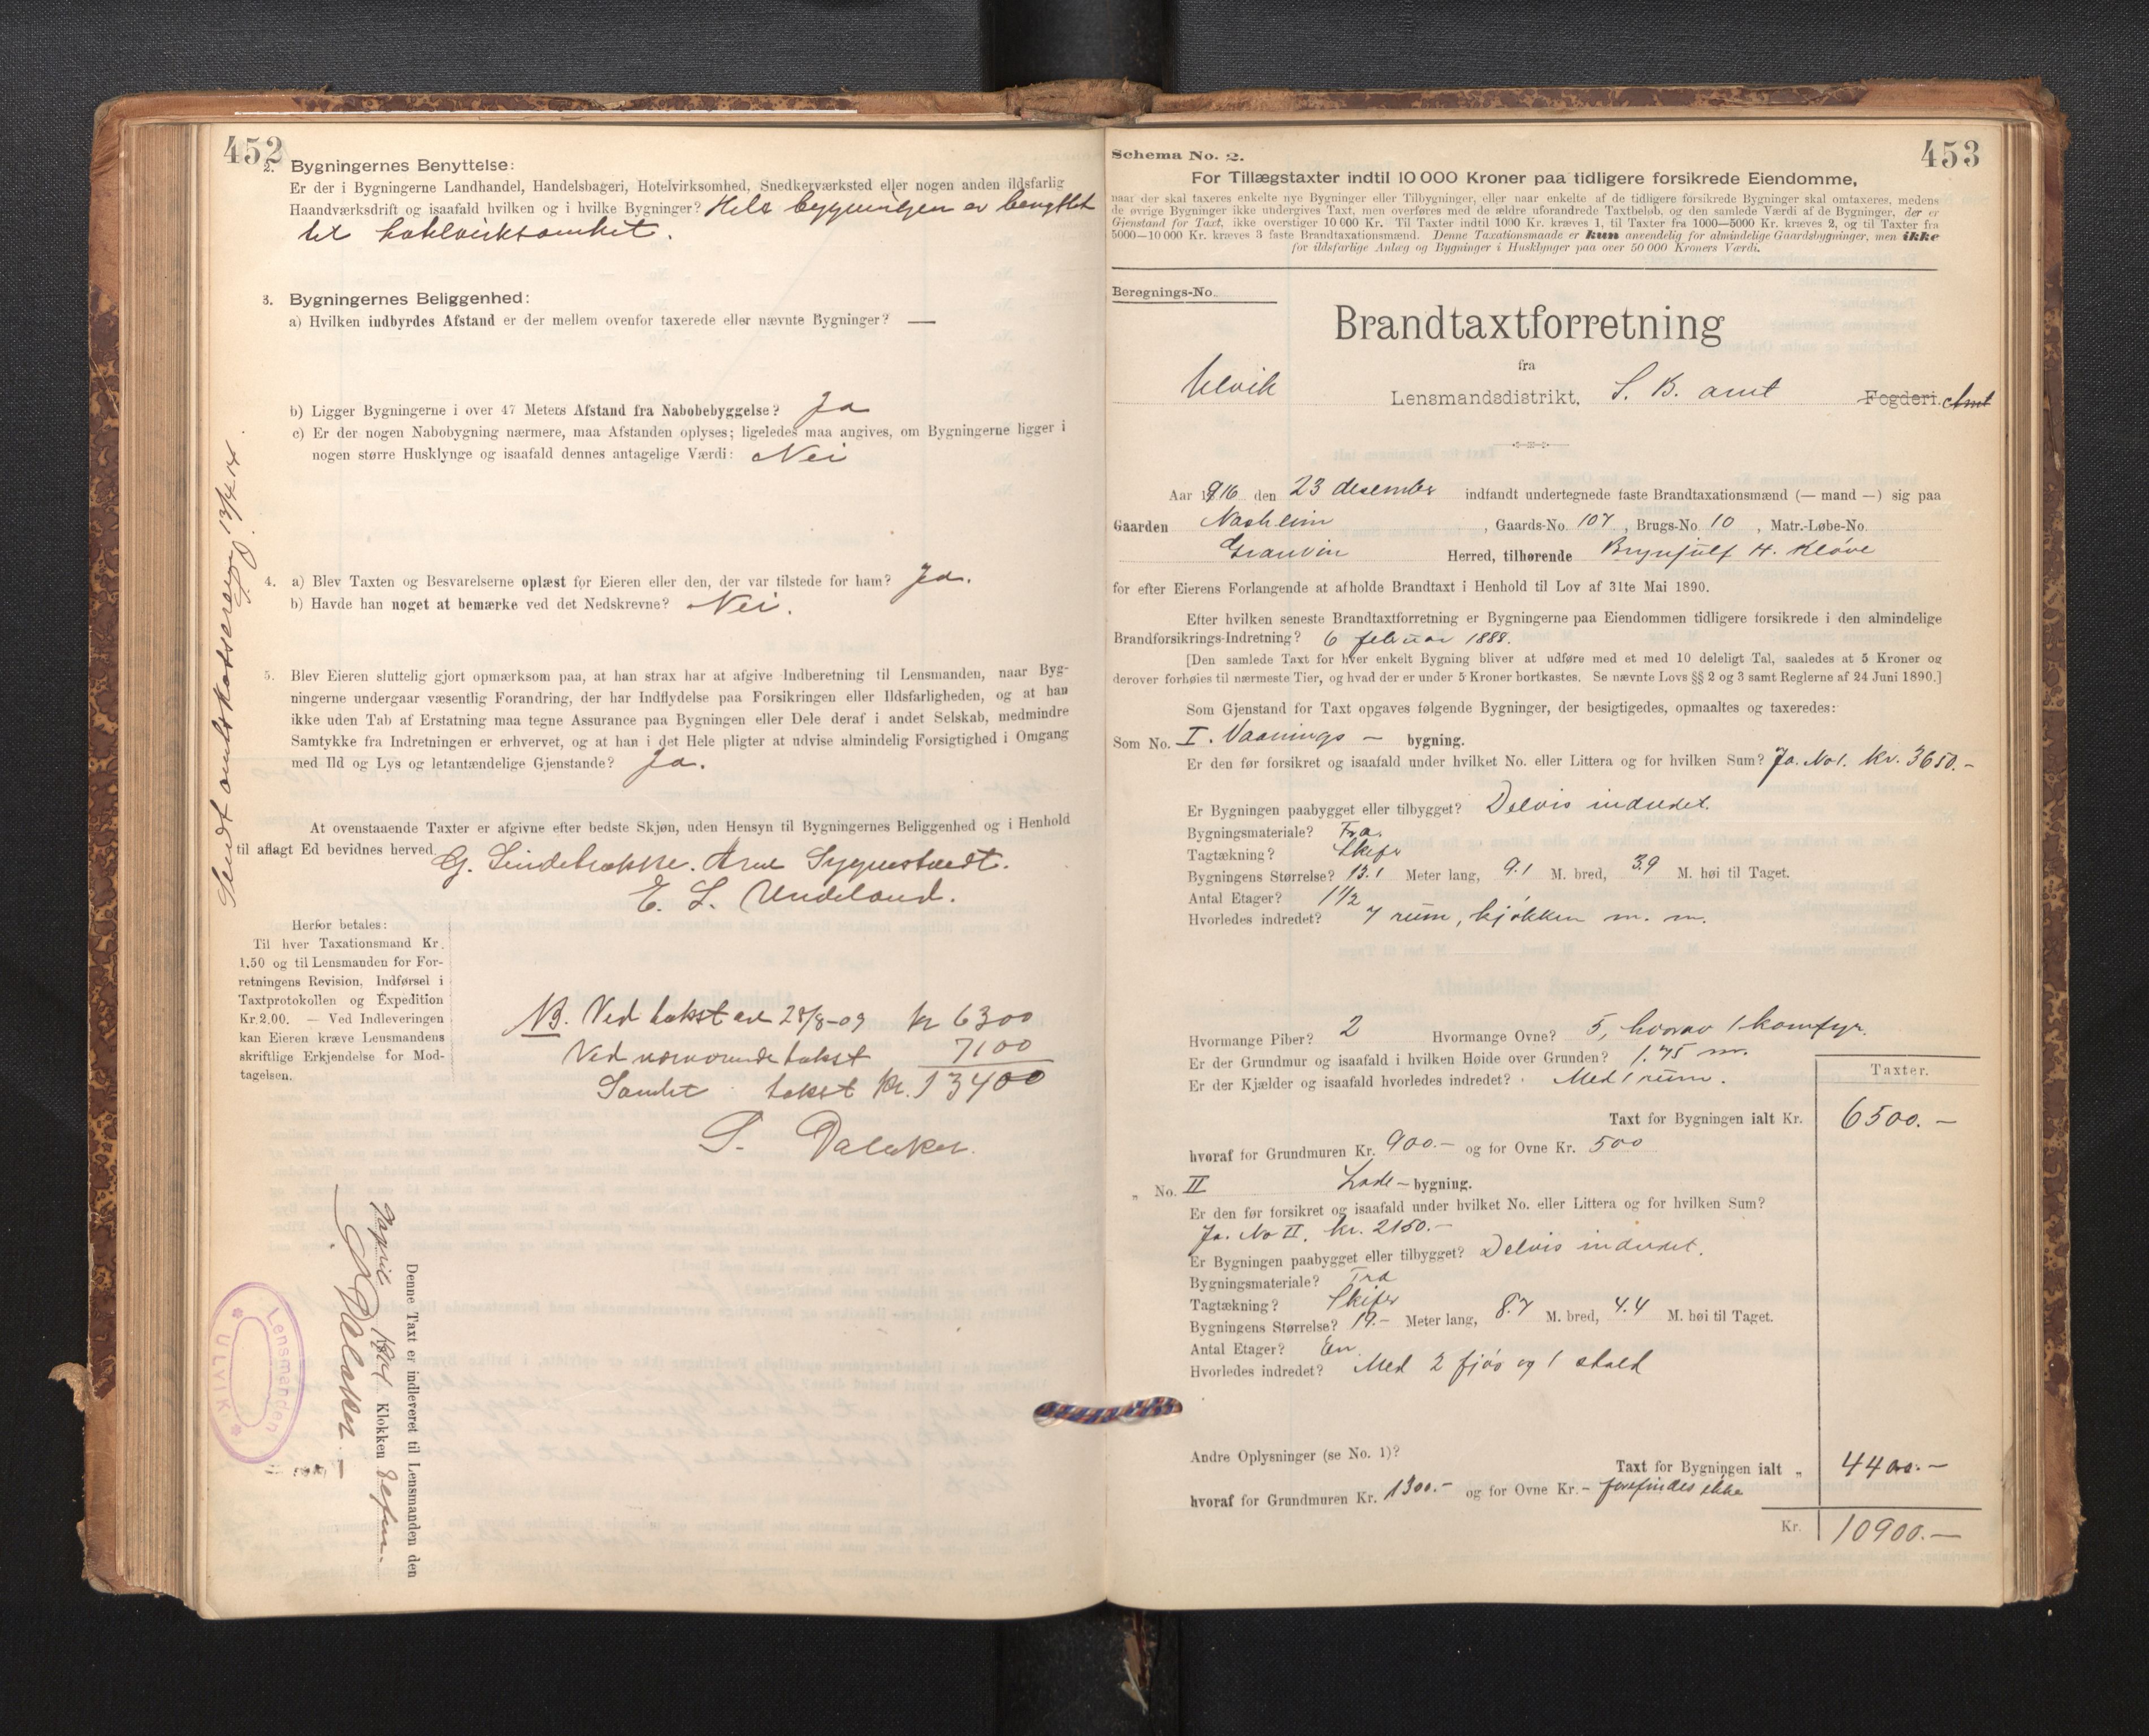 452
2. Bygningernes Benyttelse:
Er der i Bygningerne Landhandel, Handelsbageri, Hotelvirksomhed, Snedkerværksted eller nogen anden ildsfarlig
Haandværksdrift og isaafald hvilken og i hvilke Bygninger? Hele bygningen er benyttet
til hotelvirksomhet.
3. Bygningernes Beliggenhed:
a) Hvilken indbyrdes Afstand er der mellem ovenfor taxerede eller nævnte Bygninger? —
b) Ligger Bygningerne i over 47 Meters Afstand fra Nabobebyggelse? Ja
c) Er der nogen Nabobygning nærmere, maa Afstanden oplyses; ligeledes maa angives, om Bygningerne ligger i
nogen større Husklynge og isaafald dennes antagelige Værdi: Nei
4. a) Blev Taxten og Besvarelserne oplæst for Eieren eller den, der var tilstede for ham? Ja.
b) Havde han noget at bemærke ved det Nedskrevne? Nei.
5. Blev Eieren sluttelig gjort opmærksom paa, at han strax har at afgive Indberetning til Lensmanden, naar Byg-
ningerne undergaar væsentlig Forandring, der har Indflydelse paa Forsikringen eller Ildsfarligheden, og at han
ikke uden Tab af Erstatning maa tegne Assurance paa Bygningen eller Dele deraf i andet Selskab, medmindre
Samtykke fra Indretningen er erhvervet, og at han i det Hele pligter at udvise almindelig Forsigtighed i Omgang
med Ild og Lys og letantændelige Gjenstande? Ja.
At ovenstaaende Taxter er afgivne efter bedste Skjøn, uden Hensyn til Bygningernes Beliggenhed og i Henhold
til aflagt Ed bevidnes herved
G. Lindebrække. Arne Sygnestvedt.
E. L. Undeland.
Herfor betales:
Til hver Taxationsmand Kr.
1.50 og til Lensmanden for For-
retningens Revision, Indførsel i
Taxtprotokollen og Expedition
Kr. 2.00. — Ved Indleveringen
kan Eieren kræve Lensmandens
skriftlige Erkjendelse for Mod-
tagelsen.
NB. Ved takst av 28/8-09 kr 6300
Ved nærværende takst 7100
Samlet takst kr. 13400
Daleker
Sendt amtskasserer 13/4 14.
Denne Taxt er indleveret til Lensmanden den
Klokken
Daleker
Lensmanden
* ULVIK *
Schema No. 2.
453
For Tillægstaxter indtil 10 000 Kroner paa tidligere forsikrede Eiendomme,
naar der skal taxeres enkelte nye Bygninger eller Tilbygninger, eller naar enkelte af de tidligere forsikrede Bygninger skal omtaxeres, medens
de øvrige Bygninger ikke undergives Taxt, men overføres med de ældre uforandrede Taxtbeløb, og den samlede Værdi af de Bygninger, der er
Gjenstand for Taxt, ikke overstiger 10 000 Kr. Til Taxter indtil 1000 Kr. kræves 1, til Taxter fra 1000—5000 Kr. kræves 2, og til Taxter fra
5000—10 000 Kr. kræves 3 faste Brandtaxationsmænd. Denne Taxationsmaade er kun anvendelig for almindelige Gaardsbygninger, men ikke
for ildsfarlige Anlæg og Bygninger i Husklynger paa over 50 000 Kroners Værdi.
Beregnings-No.
Brandtaxtforretning
fra
Ulvik Lensmandsdistrikt, S. B. amt Fogderi. Amt
Aar 1916 den 23 desember indfandt undertegnede faste Brandtaxationsmænd (— mand —) sig paa
Gaarden Nashleim, Gaards-No. 107, Brugs-No. 10, Matr.-Løbe-No.
Granvin Herred, tilhørende Brynjulf H. Kløve
for efter Eierens Forlangende at afholde Brandtaxt i Henhold til Lov af 31te Mai 1890.
Efter hvilken seneste Brandtaxtforretning er Bygningerne paa Eiendommen tidligere forsikrede i den almindelige
Brandforsikrings-Indretning? 6 februar 1888.
[Den samlede Taxt for hver enkelt Bygning bliver at udføre med et med 10 deleligt Tal, saaledes at 5 Kroner og
derover forhøies til nærmeste Tier, og hvad der er under 5 Kroner bortkastes. Se nævnte Lovs §§ 2 og 3 samt Reglerne af 24 Juni 1890.]
Som Gjenstand for Taxt opgaves følgende Bygninger, der besigtigedes, opmaaltes og taxeredes:
Som No. I. Vaanings — bygning.
Er den før forsikret og isaafald under hvilket No. eller Littera og for hvilken Sum? Ja. No 1. kr. 3650.-
Er Bygningen paabygget eller tilbygget? Delvis indredet.
Bygningsmateriale? Træ
Tagtækning? Skifer
Bygningens Størrelse? 13.1 Meter lang, 9.1 M. bred, 3.9 M. høi til Taget.
Antal Etager? 1½
Hvorledes indredet? 7 rum, kjøkken m. m.
Hvormange Piber? 2 Hvormange Ovne? 5, hvorav 1 komfyr.
Er der Grundmur og isaafald i hvilken Høide over Grunden? 1.75 m.
Er der Kjælder og isaafald hvorledes indredet? Med 1 rum.
Taxter.
Taxt for Bygningen ialt Kr. 6500.—
hvoraf for Grundmuren Kr. 900.— og for Ovne Kr. 500
„ No. II Lade — bygning.
Er den før forsikret og isaafald under hvilket No. eller Littera og for hvilken Sum?
Ja. No II. kr. 2150.—
Er Bygningen paabygget eller tilbygget? Delvis indredet.
Bygningsmateriale? Træ
Tagtækning? Skifer
Bygningens Størrelse? 19.- Meter lang, 8.7 M. bred, 4.4 M. høi til Taget.
Antal Etager? En.
Hvorledes indredet? Med 2 fjøs og 1 stald
Andre Oplysninger (se No. 1)?
Taxt for Bygningen ialt „ 4400.—
hvoraf for Grundmuren Kr. 1300.— og for Ovne Kr. - forefindes ikke
Kr. 10900.—